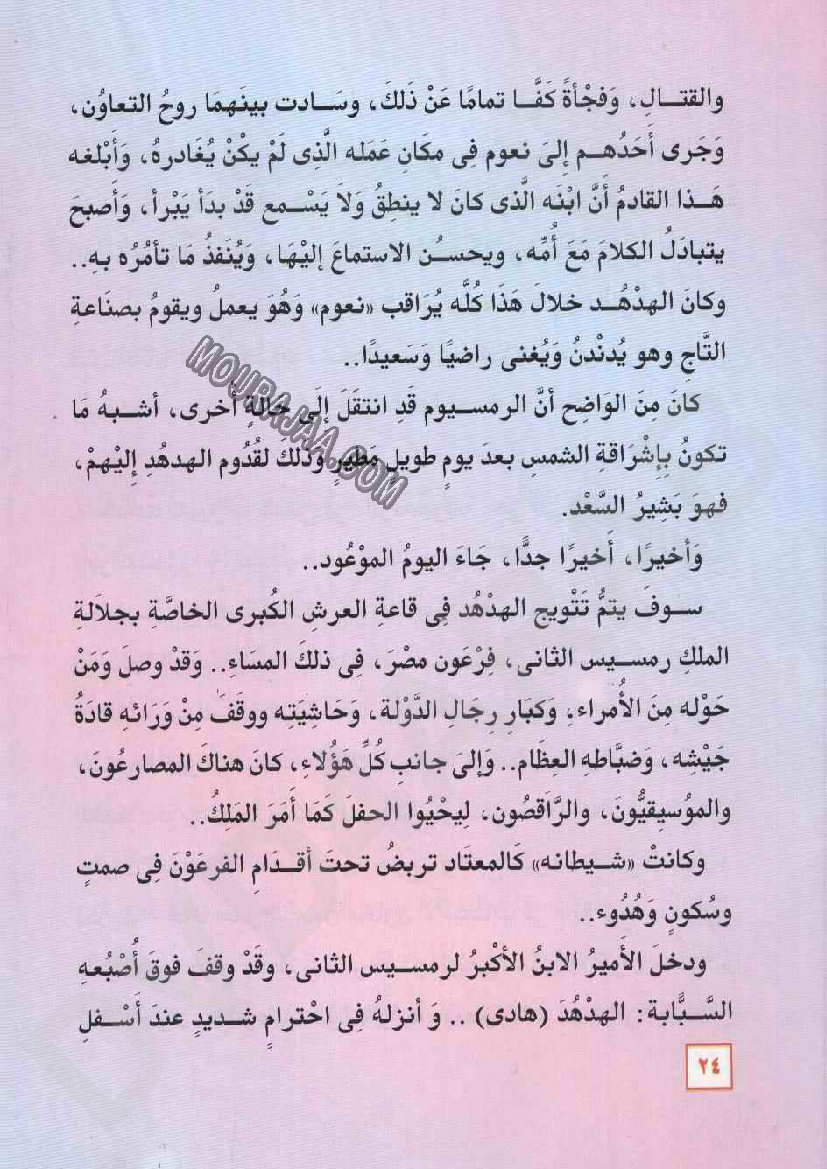 والقتـــالِ، وَفجْأةً كَفَّـا تمامًا عَنْ ذَلكَ، وسَـادت بينَهمَا روحُ التعاوُن،
وَجَرى أحَدُهـم إلىَ نعوم فِى مكَانِ عَمَله الَّذِى لَمْ يكنْ يُغَادرهُ، وَأبْلغه
هَـذا القادمُ أنَّ ابْنَه الَّذى كانَ لا ينطِقُ وَلاَ يَسْـمع قَدْ بدَأ يَبْرأ، وَأصبحَ
يتبادَلُ الكلامَ مَعَ أمِّه، ويحسـُن الاستماعَ إليْهَا، وَيُنَفذُ مَا تأمُرُه بهِ..
وكانَ الهدْهُـد خلالَ هَذَا كُلَّه يُرَاقب «نعوم» وَهُوَ يعملُ ويقومُ بصنَاعةِ
التَّاجِ وهو يُدنْدنُ وَيُغنى راضيًا وَسَعيدًا..
كانَ مِنَ الوَاضِح أنَّ الرمسـيوم قَدِ انتقَلَ إلَى حَالةٍ أخرى، أشـبهُ مَا
تكونُ بِإشْرَاقةِ الشمسِ بعدَ يومٍ طويلٍ مَطيرٍ وَذلك لقُدُوم الهدهُدِ إليْهمْ،
فهوَ بَشِيرُ السَّعْد.
وَأخيرًا، أخيرًا جدًّا، جَاءَ اليومُ الموْعُود..
سـوفَ يتمُّ تَتْويج الهدْهُد فِى قاعةِ العرشِ الكُبرى الخاصَّةِ بجلاَلةِ
الملكِ رمسـيس الثانى، فِرْعَون مصْرَ، فِى ذلكَ المسَاءِ.. وَقدْ وصلَ وَمَنْ
حَوْله مِنَ الأُمراءِ، وَكبَارِ رِجَالِ الدَّوْلة، وَحَاشِيَتِه ووقَفَ مِنْ وَرَائهِ قادَةُ
جَيْشِه، وَضبَّاطهِ العِظَام.. وَإلىَ جانبِ كُلِّ هَؤُلاءِ، كانَ هناكَ المصارعُونَ،
والموُسيقيُّونَ، والرَّاقصُون، لِيحْيُوا الحفلَ كمَا أمَرَ المَلِكُ..
وكانتْ «شـيطانه» كَالمعتَاد تربضُ تحتَ أقـدَامِ الفرعَوْنَ فِى صمتٍ
وسُكونٍ وَهُدُوء..
ودخلَ الأميرُ الابنُ الأكْبرُ لرمسـيس الثانى، وقَدْ وقفَ فوقَ أُصْبُعهِ
السَّـبَّابة: الهدْهُدَ (هادى) .. وَ أنزلهُ فِى احْترامٍ شـديدٍ عندَ أسْـفلِ
٢٤
MOURAJAA.COM